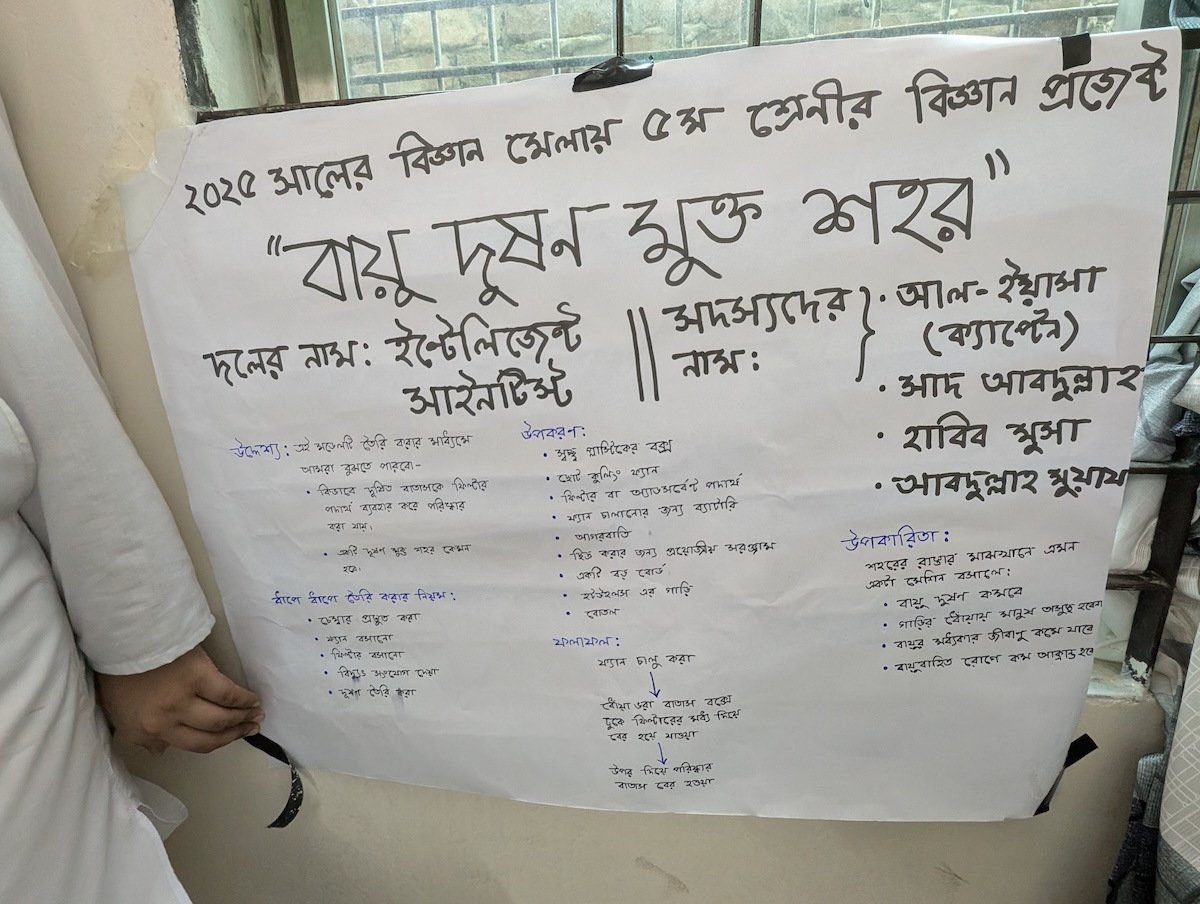 ২০২৫ সালের বিজ্ঞান মেলায় ৫ম শ্রেনীর বিজ্ঞান প্রজেক্ট
"বায়ু দুষন মুক্ত শহর"
দলের নাম: ইন্টেলিজেন্ট
সাইনটিস্ট
সদস্যদের
নাম:
• আল-ইয়াসা
(ক্যাপ্টেন)
• সাদ আবদুল্লাহ
• হাবিব মুসা
• আবদুল্লাহ মুয়ায
উদ্দেশ্য: এই মডেলটি তৈরি করার মাধ্যমে
আমরা বুঝতে পারবো-
• কিভাবে দূষিত বাতাসকে ফিল্টার
পদার্থ ব্যবহার করে পরিষ্কার
করা যায়।
• একটি দূষণ মুক্ত শহর কেমন
হবে।
ধাপে ধাপে তৈরি করার নিয়ম:
• চেম্বার প্রস্তুত করা
• ফ্যান বসানো
• ফিল্টার বসানো
• বিদ্যুত সংযোগ দেয়া
• দূষণ তৈরি করা
উপকরণ:
• স্বচ্ছ প্লাস্টিকের বক্স
• ছোট কুলিং ফ্যান
• ফিল্টার বা অ্যাডসর্বেন্ট পদার্থ
• ফ্যান চালানোর জন্য ব্যাটারি
• আগরবাতি
• ফিট করার জন্য প্রয়োজনীয় সরঞ্জাম
• একটি বড় বোর্ড
• হটউইলস এর গাড়ি
• বোতল
ফলাফল:
ফ্যান চালু করা
ধোঁয়া ভরা বাতাস বক্সে
ঢুকে ফিল্টারের মধ্য দিয়ে
বের হয়ে যাওয়া
উপর দিয়ে পরিষ্কার
বাতাস বের হওয়া
উপকারিতা:
শহরের রাস্তার মাঝখানে এমন
একটা মেশিন বসালে:
• বায়ু দুষণ কমবে
• গাড়ির ধোঁয়ায় মানুষ অসুস্থ হবেনা
• বায়ুর মধ্যকার জীবাণু কমে যাবে
• বায়ুবাহিত রোগে কম আক্রান্ত হবে